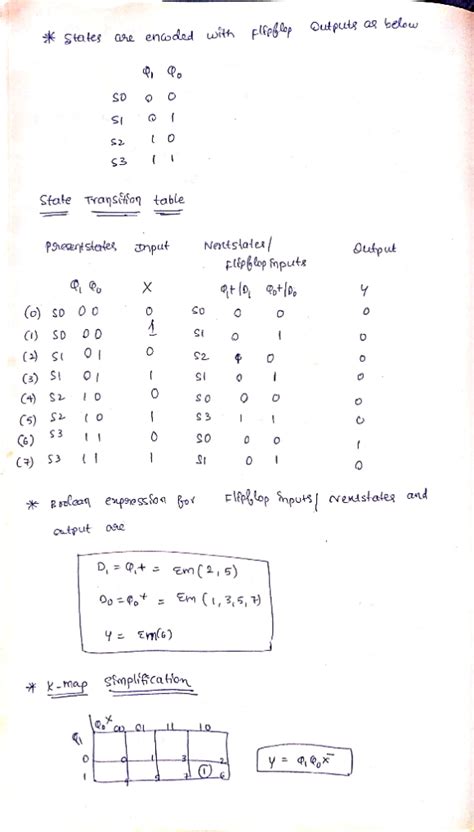 * States are encoded with flipflop Outputs as below
Q₁ Q₀
S0 0 0
S1 0 1
S2 1 0
S3 1 1
State Transition table
Present states Input Nextstates/ Output
flipflop Inputs
Q₁ Q₀ X Q₁+/D₁ Q₀+/D₀ Y
(0) S0 0 0 0 S0 0 0 0
(1) S0 0 0 1 S1 0 1 0
(2) S1 0 1 0 S2 1 0 0
(3) S1 0 1 1 S1 0 1 0
(4) S2 1 0 0 S0 0 0 0
(5) S2 1 0 1 S3 1 1 0
(6) S3 1 1 0 S0 0 0 1
(7) S3 1 1 1 S1 0 1 0
* Boolean expression for Flipflop inputs/ Nextstates and
output are
D₁ = Q₁+ = Σm(2,5)
D₀ = Q₀+ = Σm(1,3,5,7)
Y = Σm(6)
* K-map Simplification
Q₁ Q₀X 00 01 11 10
0 0 1 3 2
1 4 5 7 1 6
y = Q₁Q₀x̄